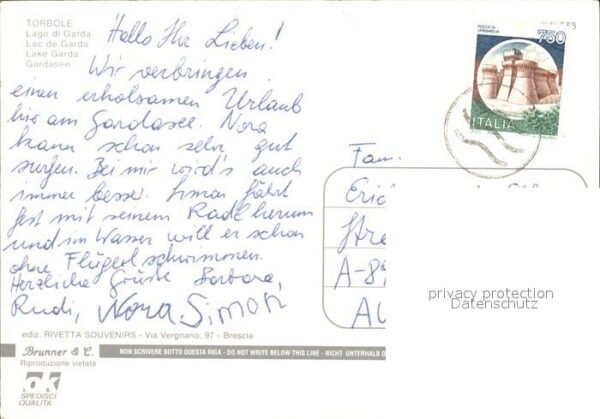 TORBOLE
Lago di Garda
Lac de Garda
Lake Garda
Gardasee
Hallo Ihr Lieben!
Wir verbringen
einen erholsamen Urlaub
hier am Gardasee. Nora
kann schon sehr gut
surfen. Bei mir wird's auch
immer besser. Simon fährt
fest mit seinem Radl herum
und im Wasser will er schon
ohne Flügerl schwimmen.
Herzliche Grüße Barbara,
Rudi, Nora, Simon
ROCCA DI
URBISAGLIA
750
ITALIA
Fam.
Eric
Stre
A-89
AU
privacy protection
Datenschutz
ediz. RIVETTA SOUVENIRS - Via Vergnano, 97 - Brescia
Brunner & C.
Riproduzione vietata
NON SCRIVERE SOTTO QUESTA RIGA - DO NOT WRITE BELOW THIS LINE - NICHT UNTERHALB D
ok
SPEDISCI
QUALITÀ